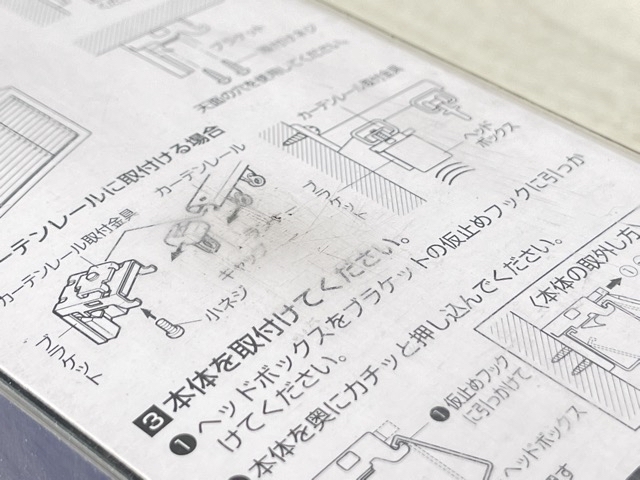 ブラケット
天面の穴を使用してください。
カーテンレール取付金具
ヘッド
ボックス
ブラケット
ーテンレールに取付ける場合
カーテンレール
ランナー
キャップ
カーテンレール取付金具
小ネジ
ブラケット
3 本体を取付けてください。
❶ ヘッドボックスをブラケットの仮止めフックに引っか
けてください。
本体を奥にカチッと押し込んでください。
❶ 仮止めフック
に引っかけて
ヘッドボックス
〈本体の取外し方